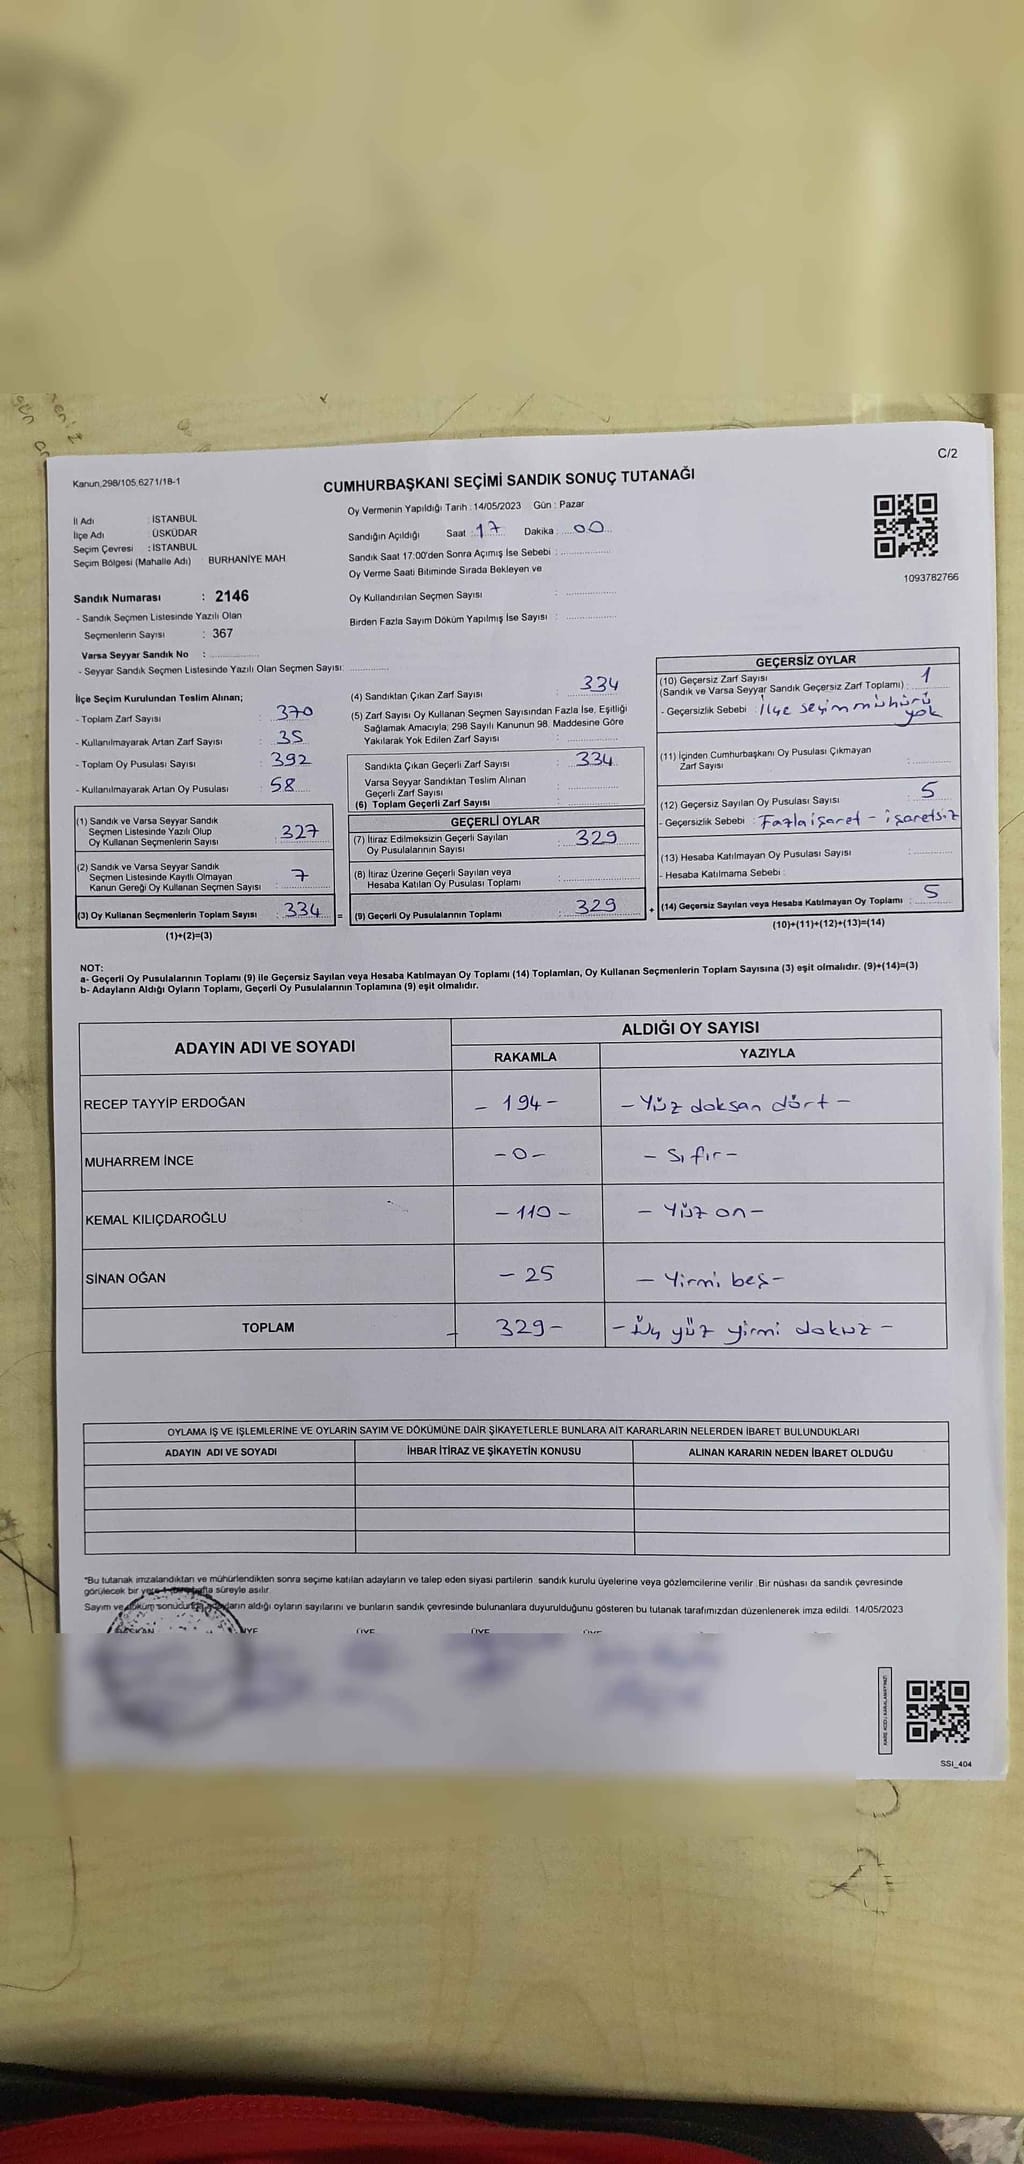 C/2
Kanun,298/105,6271/18-1
CUMHURBAŞKANI SEÇİMİ SANDIK SONUÇ TUTANAĞI
İl Adı : İSTANBUL
İlçe Adı : ÜSKÜDAR
Seçim Çevresi : İSTANBUL
Seçim Bölgesi (Mahalle Adı) BURHANİYE MAH
Oy Vermenin Yapıldığı Tarih : 14/05/2023 Gün : Pazar
Sandığın Açıldığı Saat : 17 Dakika : 00
Sandık Saat 17:00'den Sonra Açımış İse Sebebi :
Oy Verme Saati Bitiminde Sırada Bekleyen ve
Oy Kullandırılan Seçmen Sayısı :
Birden Fazla Sayım Döküm Yapılmış İse Sayısı :
1093782766
Sandık Numarası : 2146
- Sandık Seçmen Listesinde Yazılı Olan
Seçmenlerin Sayısı : 367
Varsa Seyyar Sandık No :
- Seyyar Sandık Seçmen Listesinde Yazılı Olan Seçmen Sayısı:
İlçe Seçim Kurulundan Teslim Alınan;
- Toplam Zarf Sayısı : 370
- Kullanılmayarak Artan Zarf Sayısı : 35
- Toplam Oy Pusulası Sayısı : 392
- Kullanılmayarak Artan Oy Pusulası : 58
(1) Sandık ve Varsa Seyyar Sandık
Seçmen Listesinde Yazılı Olup
Oy Kullanan Seçmenlerin Sayısı : 327
(2) Sandık ve Varsa Seyyar Sandık
Seçmen Listesinde Kayıtlı Olmayan
Kanun Gereği Oy Kullanan Seçmen Sayısı : 7
(3) Oy Kullanan Seçmenlerin Toplam Sayısı : 334 =
(1)+(2)=(3)
(4) Sandıktan Çıkan Zarf Sayısı : 334
(5) Zarf Sayısı Oy Kullanan Seçmen Sayısından Fazla İse, Eşitliği
Sağlamak Amacıyla, 298 Sayılı Kanunun 98. Maddesine Göre
Yakılarak Yok Edilen Zarf Sayısı :
Sandıkta Çıkan Geçerli Zarf Sayısı : 334
Varsa Seyyar Sandıktan Teslim Alınan
Geçerli Zarf Sayısı :
(6) Toplam Geçerli Zarf Sayısı :
GEÇERLİ OYLAR
(7) İtiraz Edilmeksizin Geçerli Sayılan
Oy Pusulalarının Sayısı : 329
(8) İtiraz Üzerine Geçerli Sayılan veya
Hesaba Katılan Oy Pusulası Toplamı :
(9) Geçerli Oy Pusulalarının Toplamı : 329 +
GEÇERSİZ OYLAR
(10) Geçersiz Zarf Sayısı
(Sandık ve Varsa Seyyar Sandık Geçersiz Zarf Toplamı) : 1
- Geçersizlik Sebebi : İlçe seçim mühürü
yok
(11) İçinden Cumhurbaşkanı Oy Pusulası Çıkmayan
Zarf Sayısı :
(12) Geçersiz Sayılan Oy Pusulası Sayısı : 5
- Geçersizlik Sebebi : Fazla işaret - işaretsiz
(13) Hesaba Katılmayan Oy Pusulası Sayısı :
- Hesaba Katılmama Sebebi :
(14) Geçersiz Sayılan veya Hesaba Katılmayan Oy Toplamı : 5
(10)+(11)+(12)+(13)=(14)
NOT:
a- Geçerli Oy Pusulalarının Toplamı (9) ile Geçersiz Sayılan veya Hesaba Katılmayan Oy Toplamı (14) Toplamları, Oy Kullanan Seçmenlerin Toplam Sayısına (3) eşit olmalıdır. (9)+(14)=(3)
b- Adayların Aldığı Oyların Toplamı, Geçerli Oy Pusulalarının Toplamına (9) eşit olmalıdır.
ADAYIN ADI VE SOYADI ALDIĞI OY SAYISI
RAKAMLA YAZIYLA
RECEP TAYYİP ERDOĞAN - 194 - - Yüz doksan dört -
MUHARREM İNCE - 0 - - Sıfır -
KEMAL KILIÇDAROĞLU - 110 - - Yüz on -
SİNAN OĞAN - 25 - Yirmi beş -
TOPLAM - 329 - - Üç yüz yirmi dokuz -
OYLAMA İŞ VE İŞLEMLERİNE VE OYLARIN SAYIM VE DÖKÜMÜNE DAİR ŞİKAYETLERLE BUNLARA AİT KARARLARIN NELERDEN İBARET BULUNDUKLARI
ADAYIN ADI VE SOYADI İHBAR İTİRAZ VE ŞİKAYETİN KONUSU ALINAN KARARIN NEDEN İBARET OLDUĞU
*Bu tutanak imzalandıktan ve mühürlendikten sonra seçime katılan adayların ve talep eden siyasi partilerin sandık kurulu üyelerine veya gözlemcilerine verilir. Bir nüshası da sandık çevresinde
görülecek bir yere 1 (bir) hafta süreyle asılır.
Sayım ve döküm sonucunda adayların aldığı oyların sayılarını ve bunların sandık çevresinde bulunanlara duyurulduğunu gösteren bu tutanak tarafımızdan düzenlenerek imza edildi. 14/05/2023
BAŞKAN ÜYE ÜYE ÜYE ÜYE
SSI_404